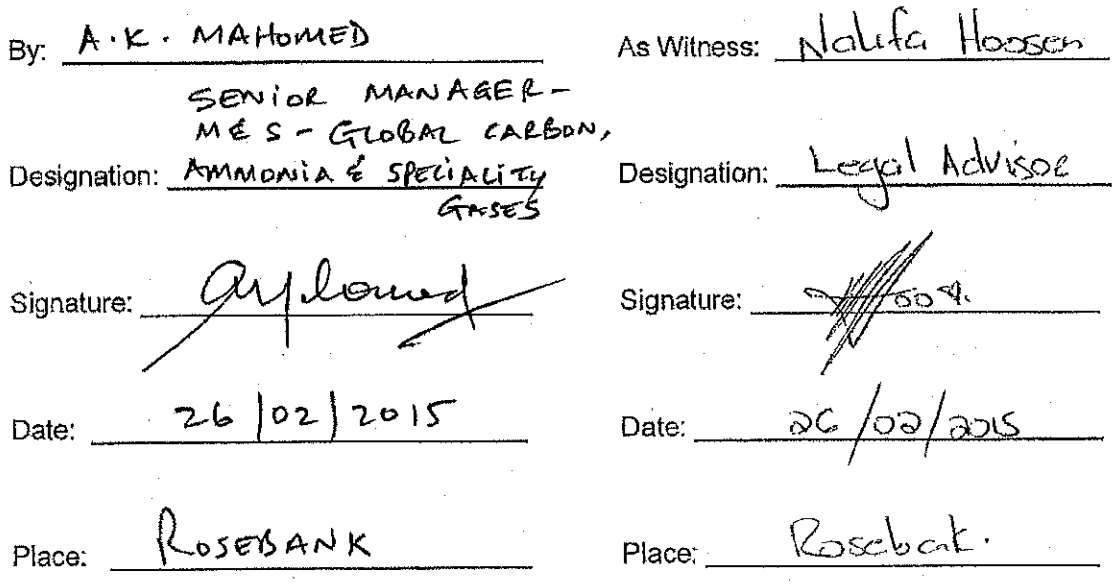 By: A.K. MAHOMED
SENIOR MANAGER-
M & S - GLOBAL CARBON,
Designation: AMMONIA & SPECIALITY
GASES
Signature:
Date: 26/02/2015
Place: ROSEBANK
As Witness: Hoosen
Designation: Legal Advisor
Signature:
Date: 26/02/2015
Place: Rosebank.